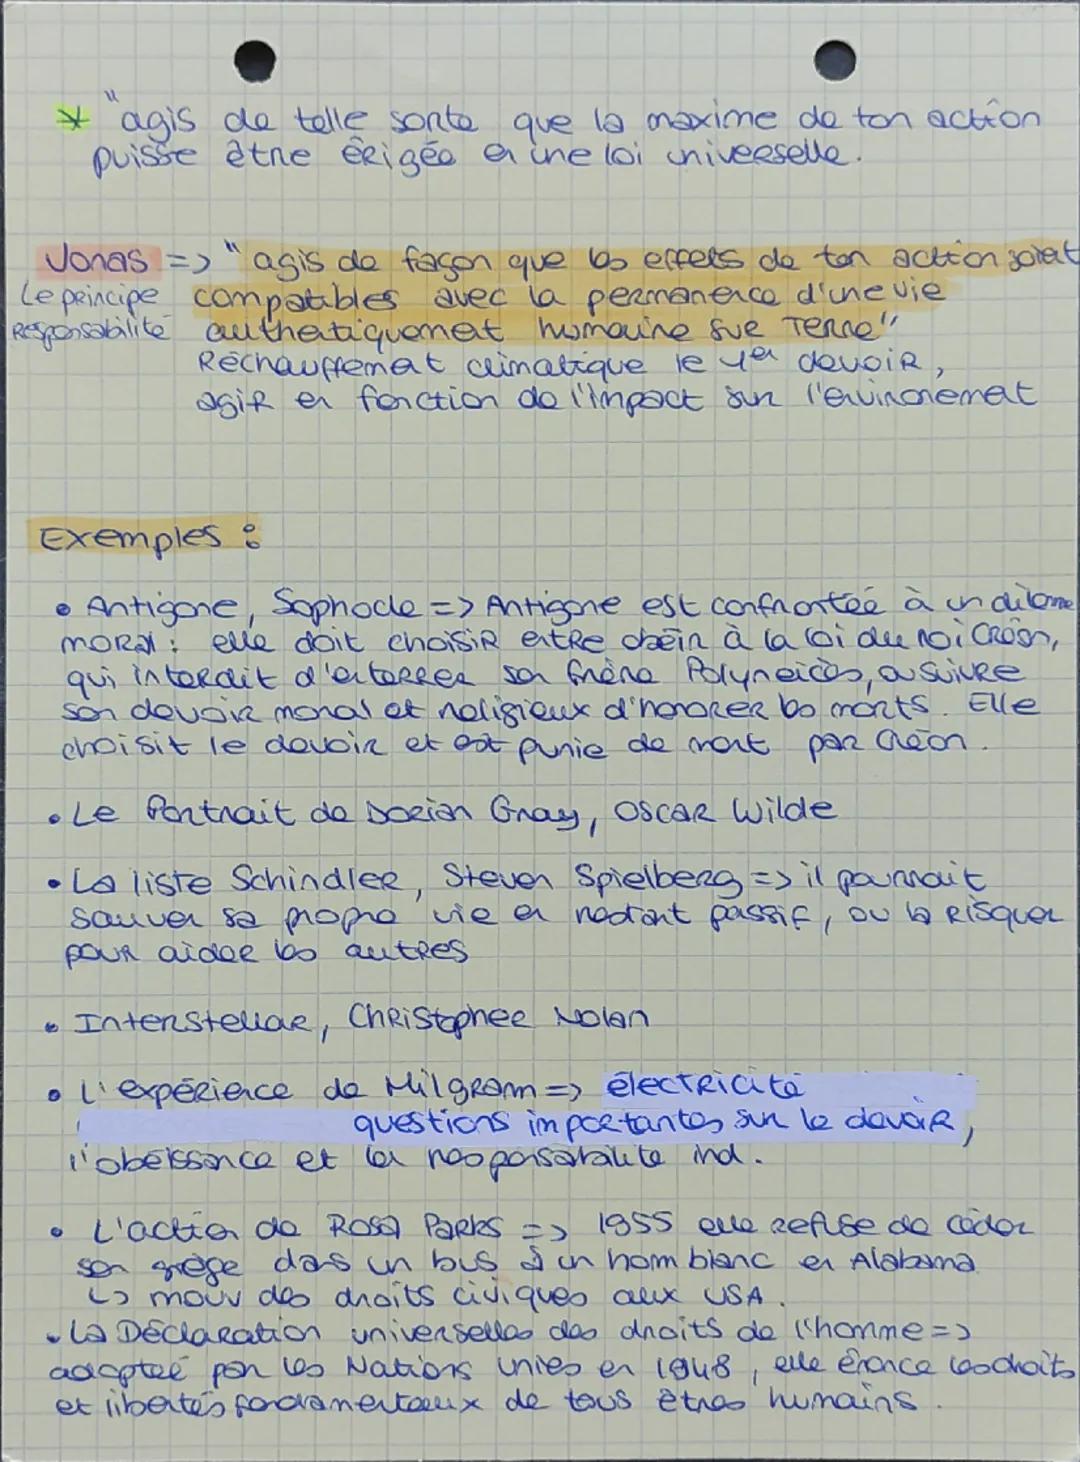 * "agis de telle sorte que la maxime de ton action
puisse être érigée en une loi universelle.
Jonas => "agis de façon que les effets de ton action soient
Le principe compatibles avec la permanence d'une vie
Responsabilité authentiquement humaine sur Terre"
Réchauffement climatique le 1er devoir,
agir en fonction de l'impact sur l'environement
Exemples :
• Antigone, Sophocle => Antigone est confrontée à un dilome
moral : elle doit choisir entre obéir à la loi du roi Créon,
qui interdit d'enterrer son frère Polyneices, ou suivre
son devoir moral et religieux d'honorer les morts. Elle
choisit le devoir et est punie de mort par Créon.
• Le Portrait de Dorian Gray, Oscar Wilde
• La liste Schindler, Steven Spielberg => il pourrait
sauver sa propre vie en restant passif, ou la risquer
pour aider les autres
• Interstellar, Christopher Nolan
• L'expérience de Milgram => électricité
questions importantes sur le devoir,
l'obéissance et la responsabilité ind.
• L'action de Rosa Parks => 1955 elle refuse de céder
son siège dans un bus à un hom blanc en Alabama
↳ mouv des droits civiques aux USA.
• La Déclaration universelles des droits de l'homme =>
adoptée par les Nations unies en 1948, elle énonce les droits
et libertés fondamentaux de tous êtres humains.